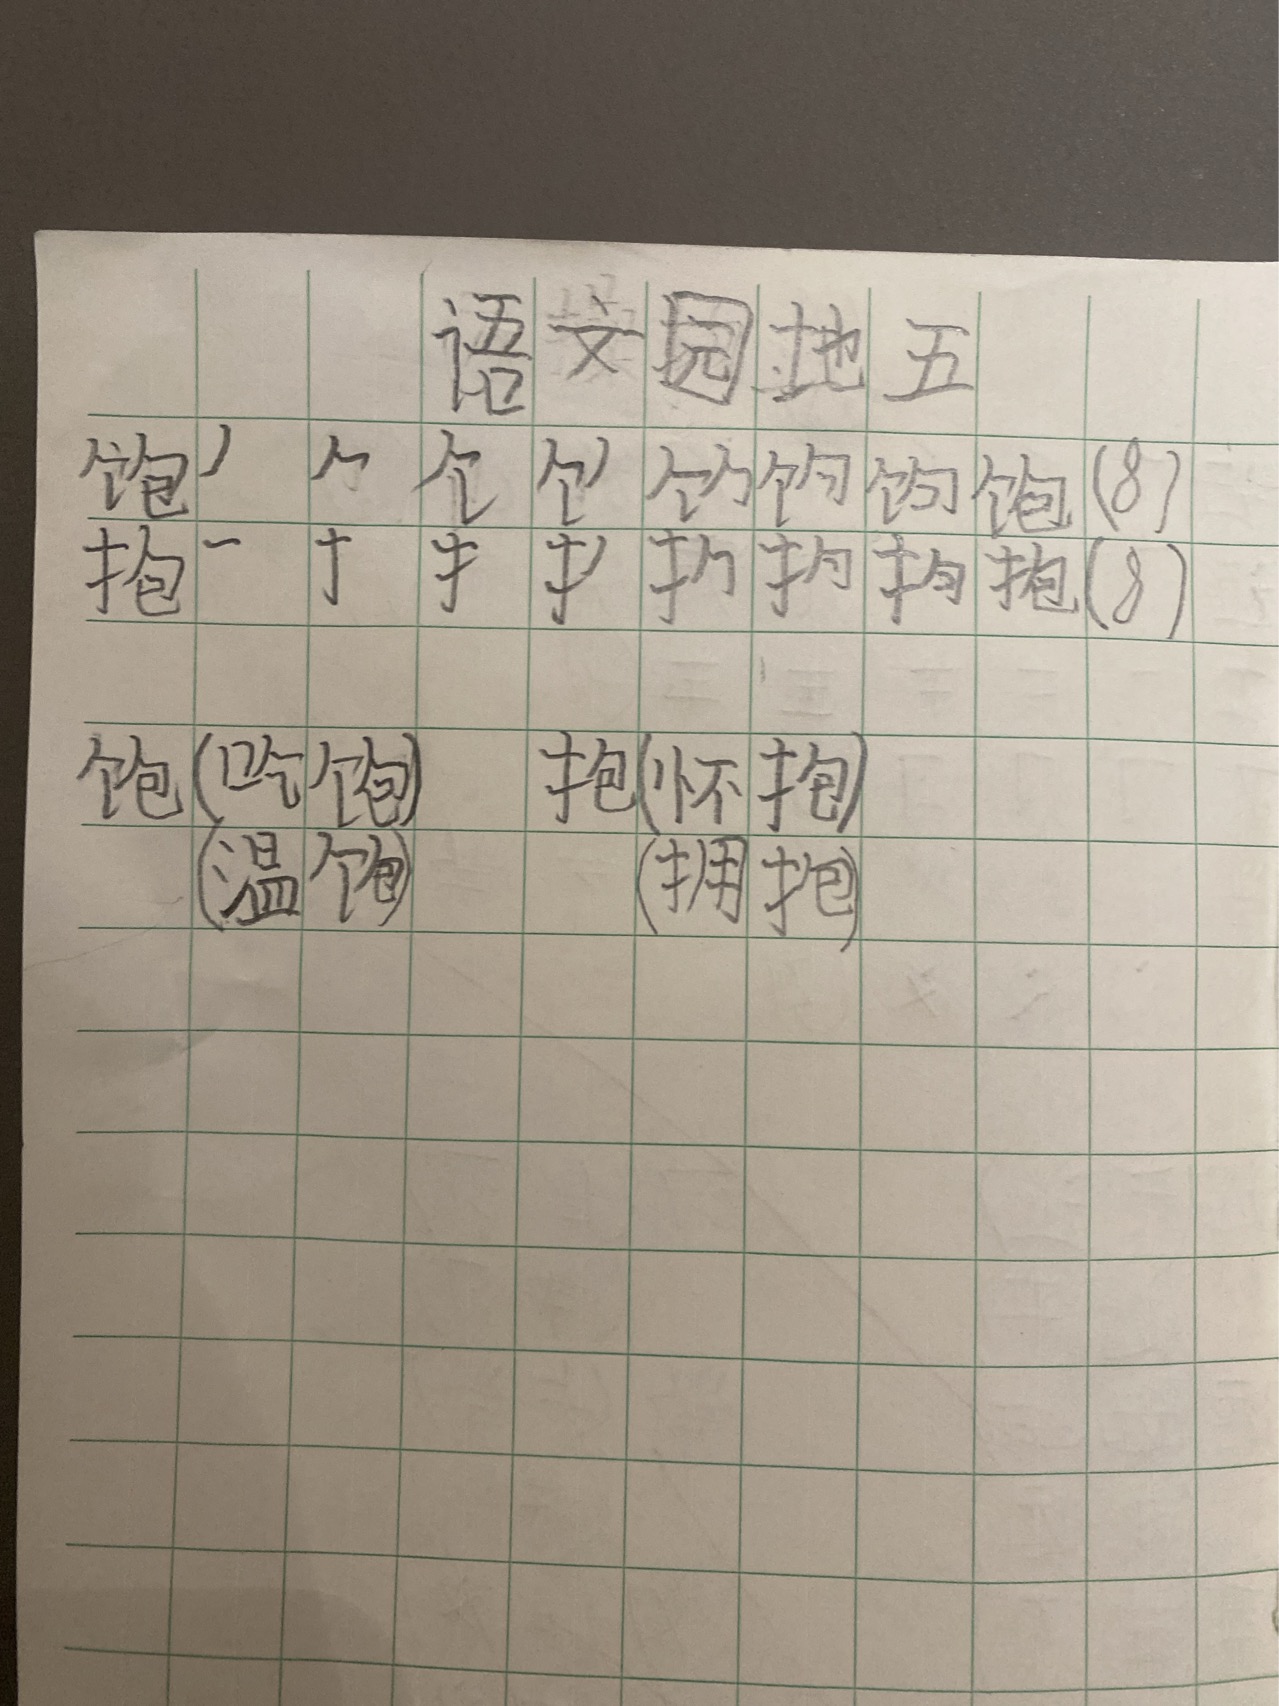 语文园地五
饱丿𠂊饣饣丿饣𠂊饣勹饣㔾饱(8)
抱一十扌扌丿扌𠂊扌勹扌㔾抱(8)
饱(吃饱) 抱(怀抱)
(温饱) (拥抱)